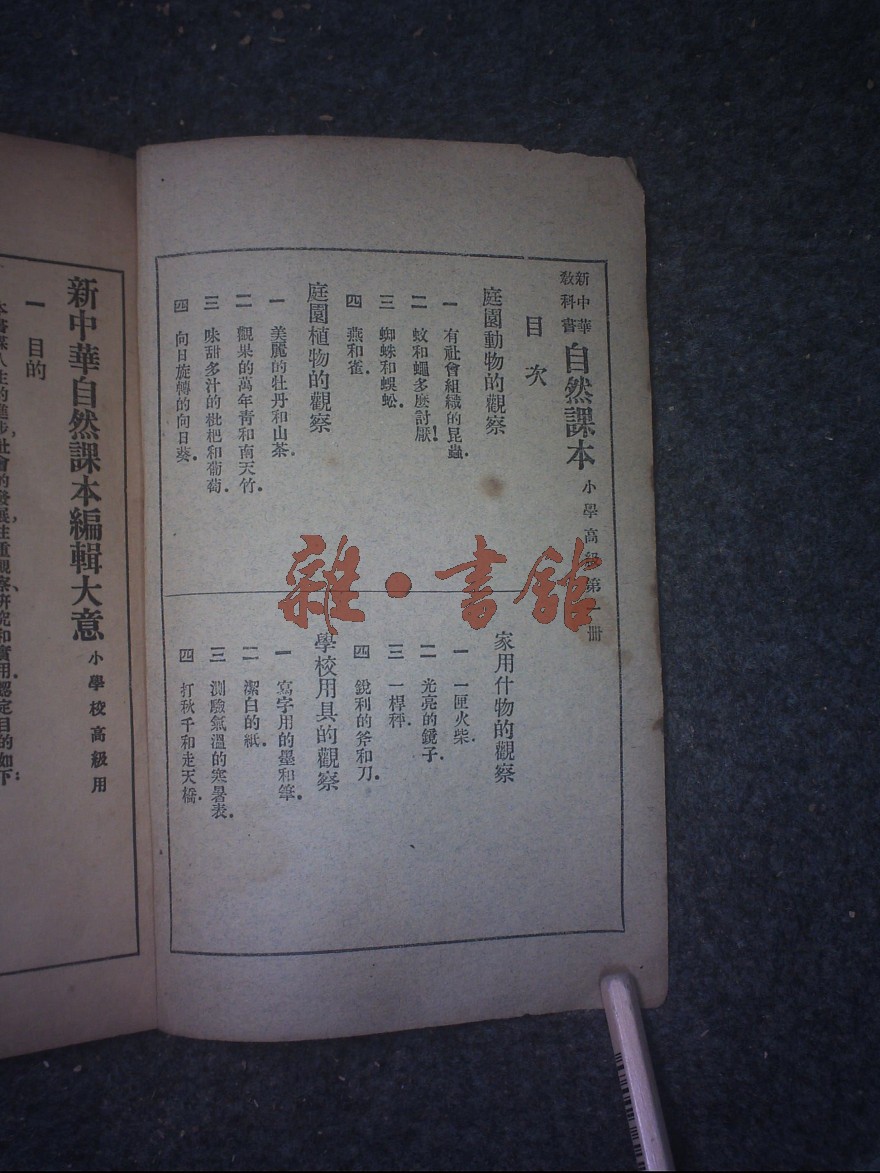 新中華
教科書
自然課本 小學高級第一冊
目次
庭園動物的觀察
一 有社會組織的昆蟲.
二 蚊和蠅多麽討厭!
三 蜘蛛和蜈蚣.
四 燕和雀.
庭園植物的觀察
一 美麗的牡丹和山茶.
二 觀果的萬年青和南天竹.
三 味甜多汁的枇杷和葡萄.
四 向日旋轉的向日葵.
家用什物的觀察
一 一匣火柴.
二 光亮的鏡子.
三 一桿秤.
四 銳利的斧和刀.
學校用具的觀察
一 寫字用的墨和筆.
二 潔白的紙.
三 測驗氣溫的寒暑表.
四 打秋千和走天橋.
雜·書館
新中華自然課本編輯大意 小學校高級用
一 目的
人生的進步,社會的發展注重觀察、研究和實用.認定目的如下: